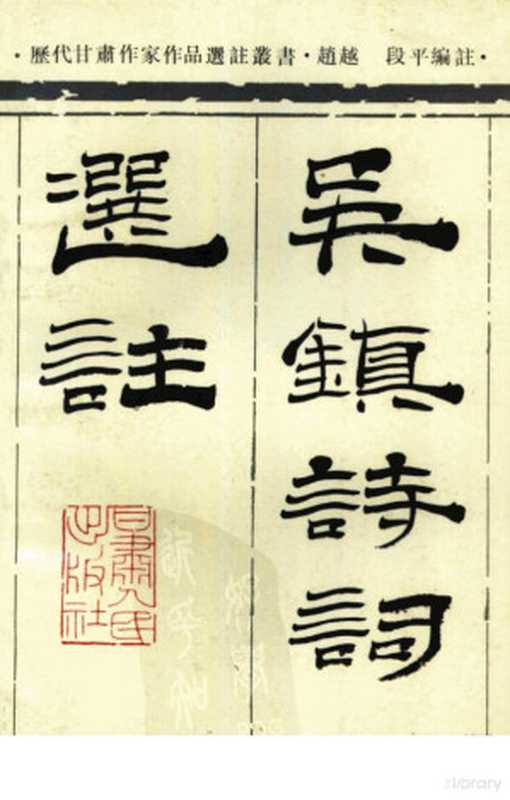 ·歷代甘肅作家作品選註叢書·趙越 段平編註·
吳鎮詩詞
選註
甘肅人民
出版社
zlibrary